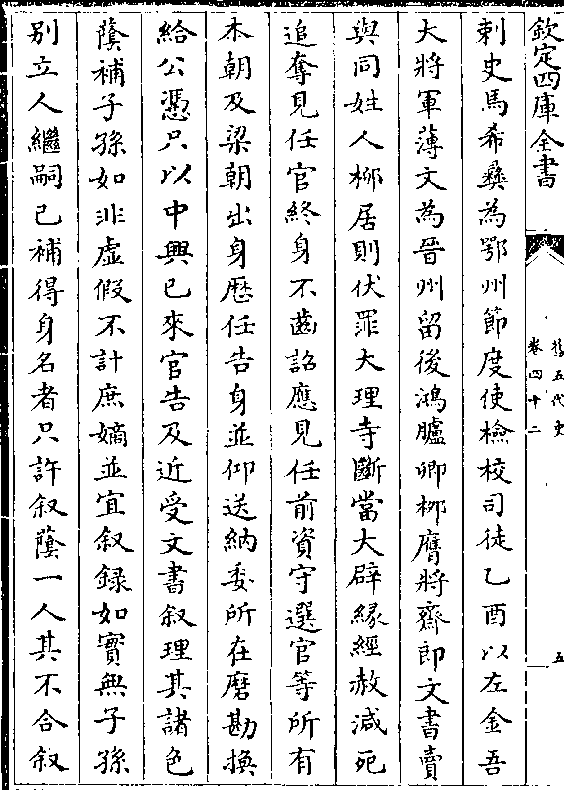 欽定四庫全書
舊五代史
卷四十二
五
刺史馬希彝為鄂州節度使檢校司徒乙酉以左金吾
大將軍薄文為晉州留後鴻臚卿柳膺將齋郎文書賣
與同姓人柳居則伏罪大理寺斷當大辟緣經赦減死
追奪見任官終身不齒詔應見任前資守選官等所有
本朝及梁朝出身歷任告身並仰送納委所在磨勘換
給公憑只以中興已來官告及近受文書叙理其諸色
蔭補子孫如非虛假不計庶嫡並宜叙録如實無子孫
别立人繼嗣已補得身名者只許叙蔭一人其不合叙